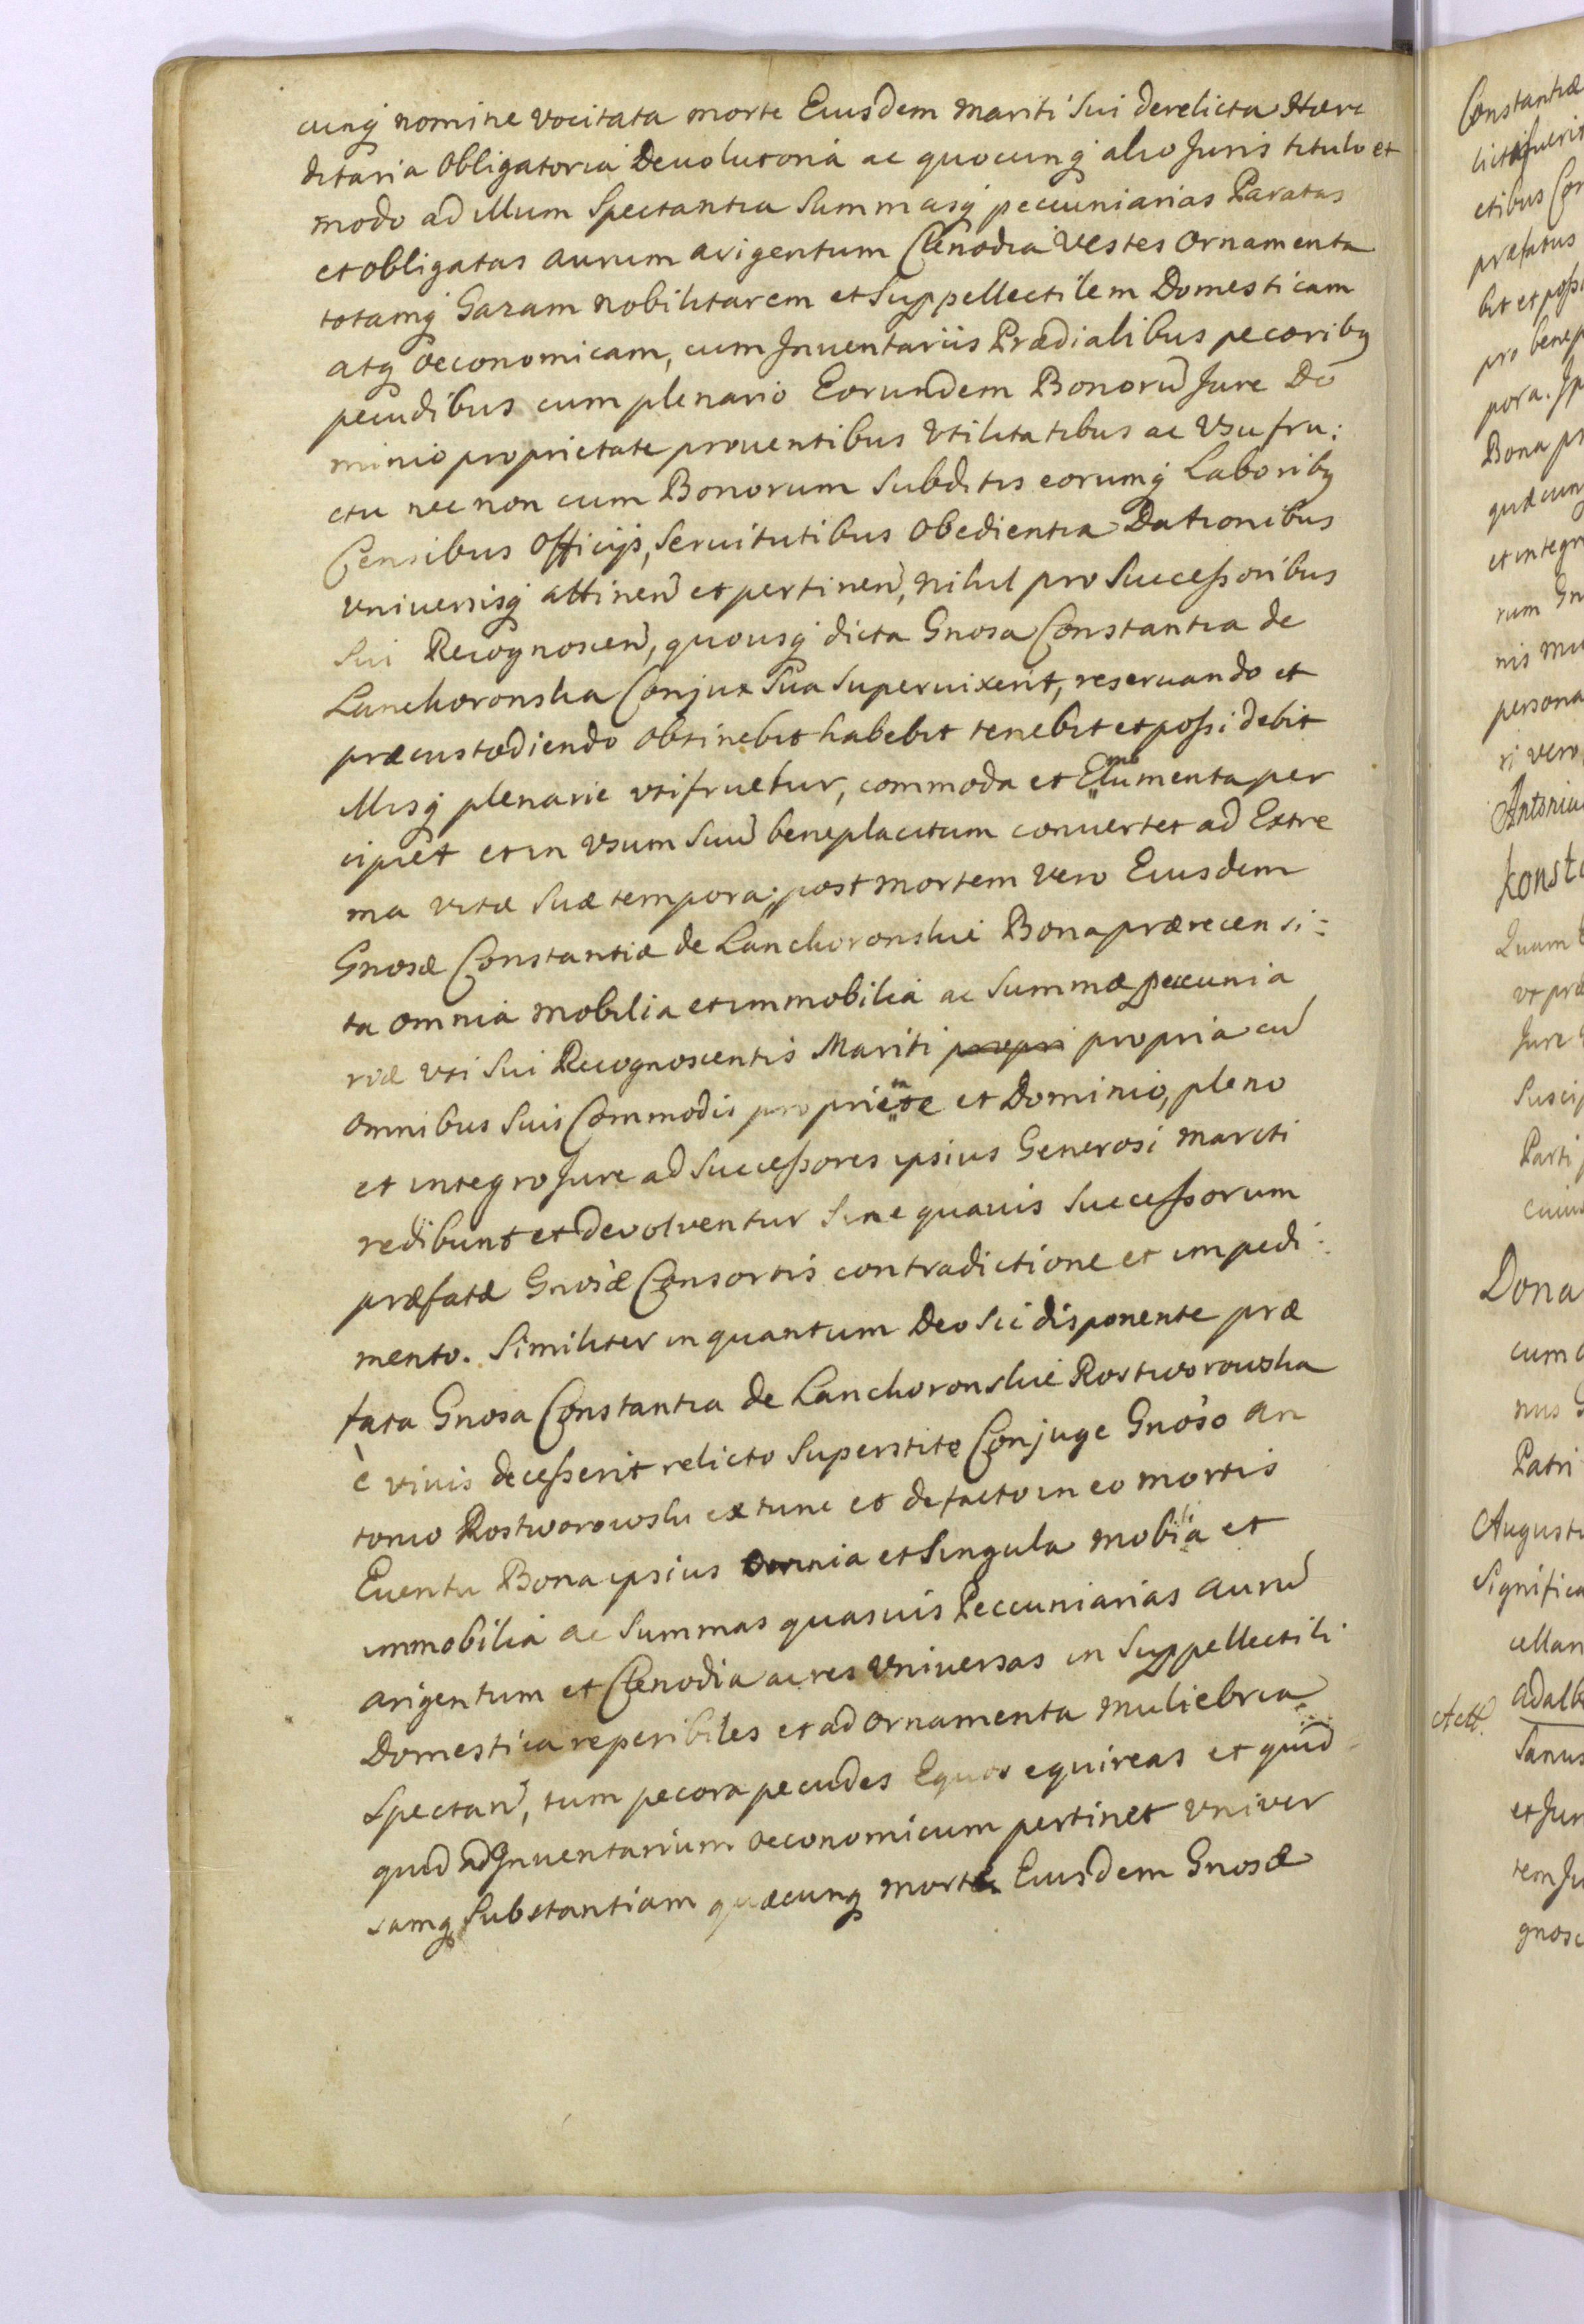 cunq nomine vocitata morte Eiusdem mariti sui derelicta Hære
ditaria Obligatoria Devolutoria ac quocunq alio Juris titulo et
modo ad illum Spectantia Summasq pecuniarias Paratas
et obligatas aurum arigentum Clenodia Vestes Ornamenta
totamq Gazam nobilitarem et Suppellectilem Domesticam
atq Oeconomicam, cum Inventariis Prædialibus pecoribq
pecudibus cum plenario Eorundem Bonorū Jure Do
minio proprietate proventibus Vtilitatibus ac Vsufru:
ctu nec non cum Bonorum Subditis eorumq Laboribq
Censibus Officijs, Seruitutibus Obedientia Dationibus
vniuersisq attineñ et pertineñ, nihil pro Successoribus
Sui Recognosceñ, quousq dicta Gnosa Constantia de
Lanchoronska Conjux Sua Superuixerit, reseruando et
præcustodiendo obtinebit habebit tenebit et possidebit
illisq plenarie vtifruetur, commoda et Emolumenta per
cipiet et in Vsum Suū beneplacitum conuertet ad Extre
ma vitæ Suæ tempora; post mortem vero Eiusdem
Gnosæ Constantiæ de Lanchoronskie Bona prærecensi:
ta omnia mobilia et immobilia ac Summæ peccunia
riæ vti Sui Recognoscentis Mariti propri propria cū
omnibus Suis Commodis proprietate et Dominio, pleno
et integro Jure ad Successores ipsius Generosi mariti
redibunt et devolventur Sine quauis Successorum
præfatæ Gnosæ Consortis contradictione et impedi:
mento. Similiter in quantum Deo Sic disponente præ
fata Gnosa Constantia de Lanchoronskie Rostworowska
è vivis decesserit relicto Superstite Conjuge Gnoso An
tonio Rostworowski ex tunc et de facto in eo mortis
Euentu Bona ipsius Omnia et Singula mobilia et
immobilia ac Summas quasuis Peccuniarias aurū
arigentum et Clenodia ac res Vniuersas in Suppellectili
Domestica reperibiles et ad ornamenta muliebria
Spectañ, tum pecora pecudes Equos equireas et quid
quid ad Inuentarium oeconomicum pertinet vniver
samq Substantiam quæcunq morte Eiusdem Gnosæ
Constantiæ
Bona
persona
Antonia
Dona
Patri
Augusti
Actt.